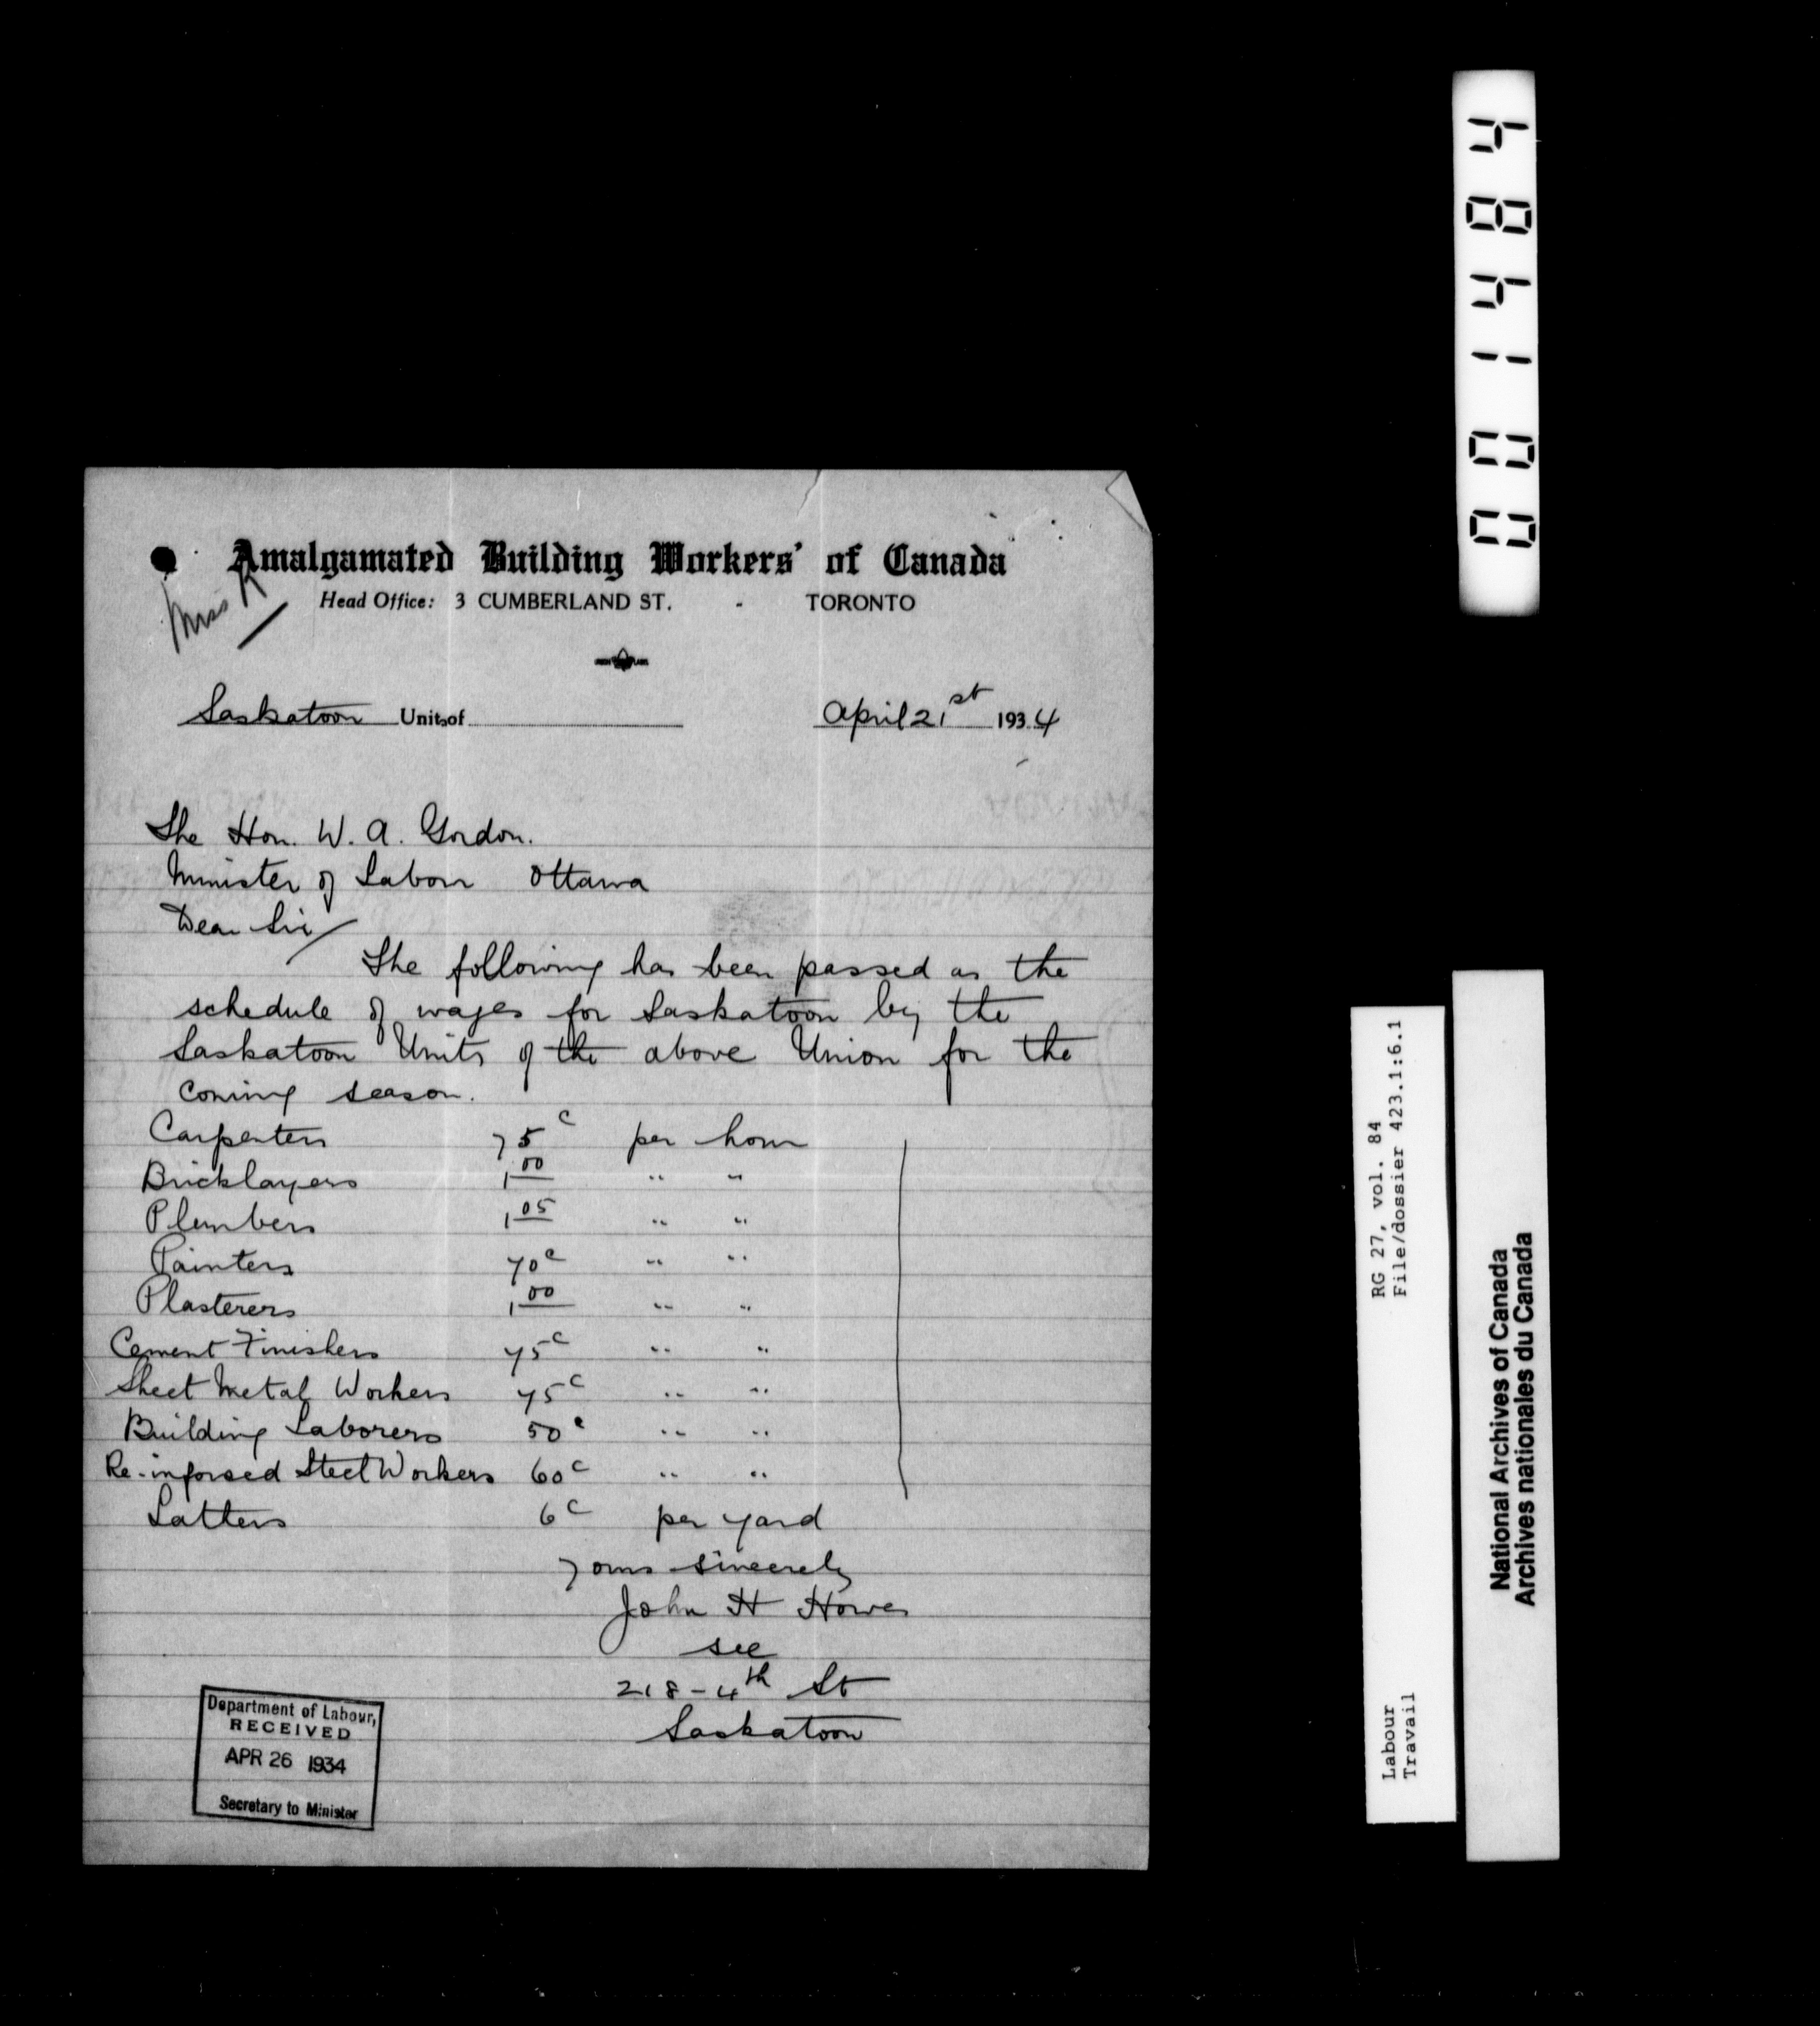 Amalgamated Building Workers' of Canada
Head Office: 3 CUMBERLAND ST. - TORONTO
Miss R
Saskatoon Units of
April 21st 1934
The Hon. W. A. Gordon.
Minister of Labour Ottawa
Dear Sir/
The following has been passed as the
schedule of wages for Saskatoon by the
Saskatoon Units of the above Union for the
coming season.
Carpenters 75c per hour
Bricklayers 1.00 " "
Plumbers 1 05 " "
Painters 70c " "
Plasterers 1 00 " "
Cement Finishers 75c " "
Sheet Metal Workers 75c " "
Building Laborers 50c " "
Re-inforsed Steel Workers 60c " "
Latters 6c per yard
Yours sincerely
John H Howes
sec
218-4th St
Saskatoon
Department of Labour,
RECEIVED
APR 26 1934
Secretary to Minister
004184
Labour
Travail
RG 27, vol. 84
File/dossier 423.1:6.1
National Archives of Canada
Archives nationales du Canada